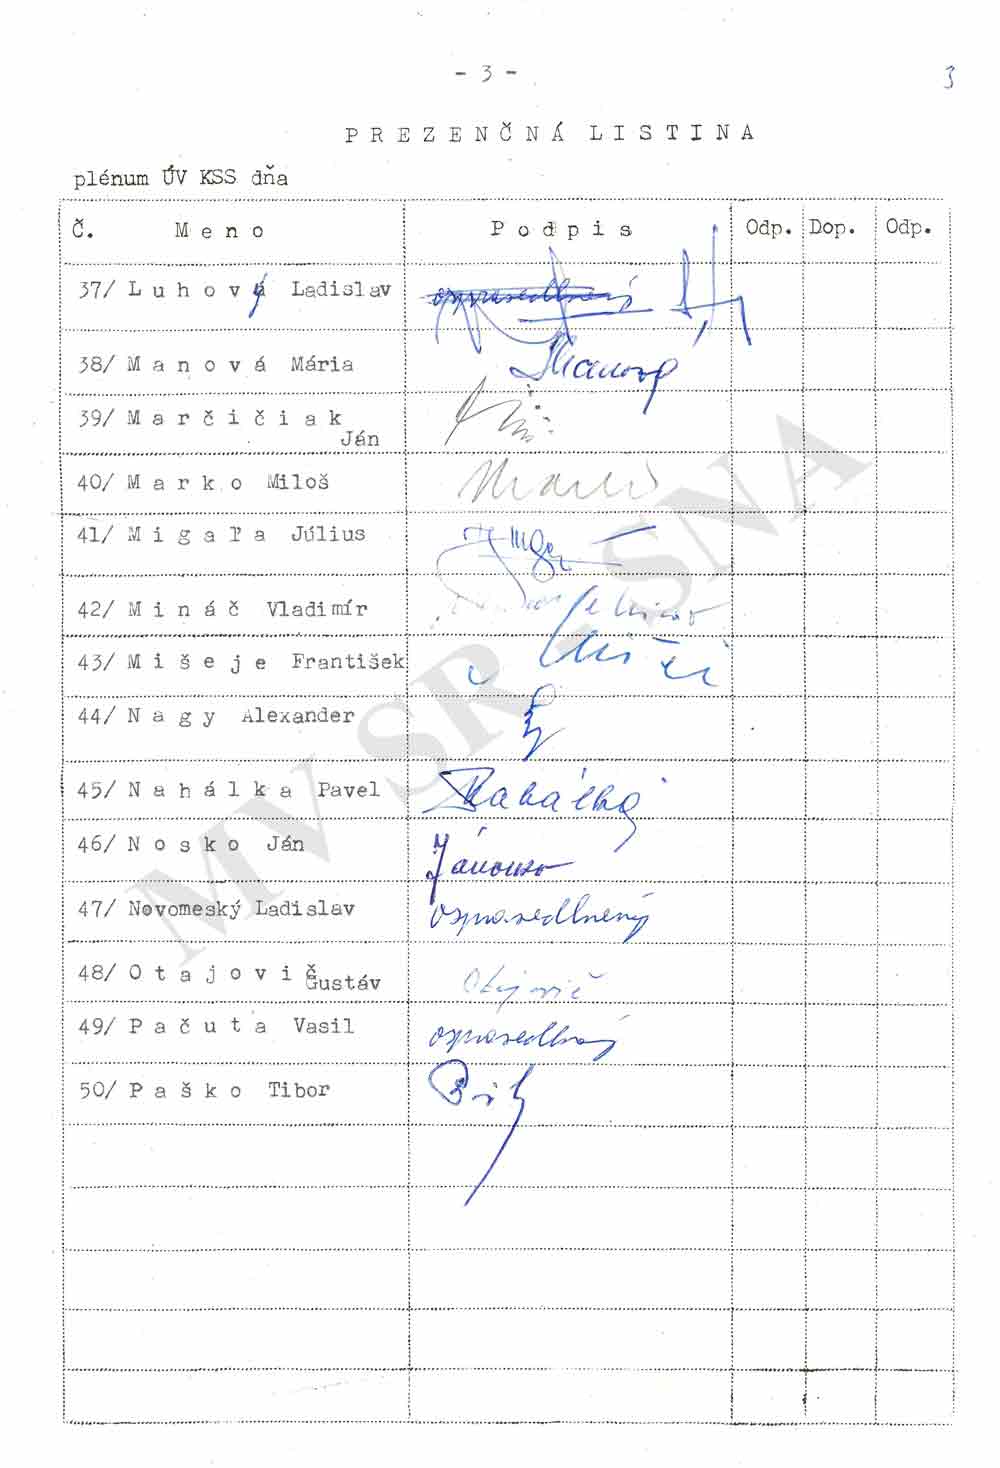 - 3 -
3
PREZENČNÁ LISTINA
plénum ÚV KSS dňa
Č. Meno Podpis Odp. Dop. Odp.
37/ Luhový Ladislav ospravedlnený
38/ Manová Mária Manová
39/ Marčičiak
Ján
40/ Marko Miloš
41/ Migaľa Július
42/ Mináč Vladimír
43/ Mišeje František
44/ Nagy Alexander
45/ Nahálka Pavel Nahálka
46/ Nosko Ján
47/ Novomeský Ladislav ospravedlnený
48/ Otajovič
Gustáv Otajovič
49/ Pačuta Vasil ospravedlnený
50/ Paško Tibor
MV SR - SNA